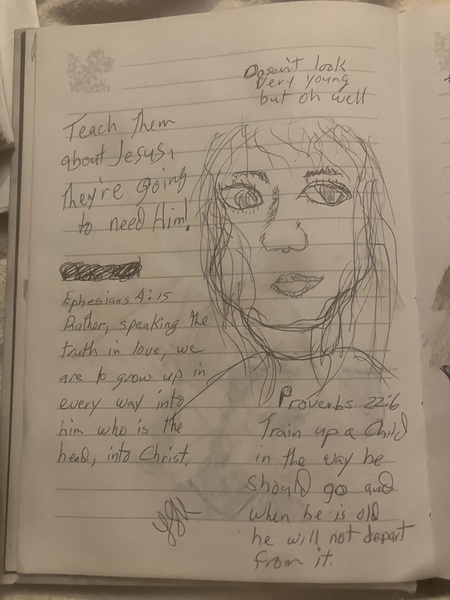 Doesn't look
very young
but oh well
Teach them
about Jesus,
they're going
to need Him!
Ephesians 4:15
Rather, speaking the
truth in love, we
are to grow up in
every way into
him who is the
head, into Christ.
Proverbs 22:6
Train up a Child
in the way he
should go and
when he is old
he will not depart
from it.